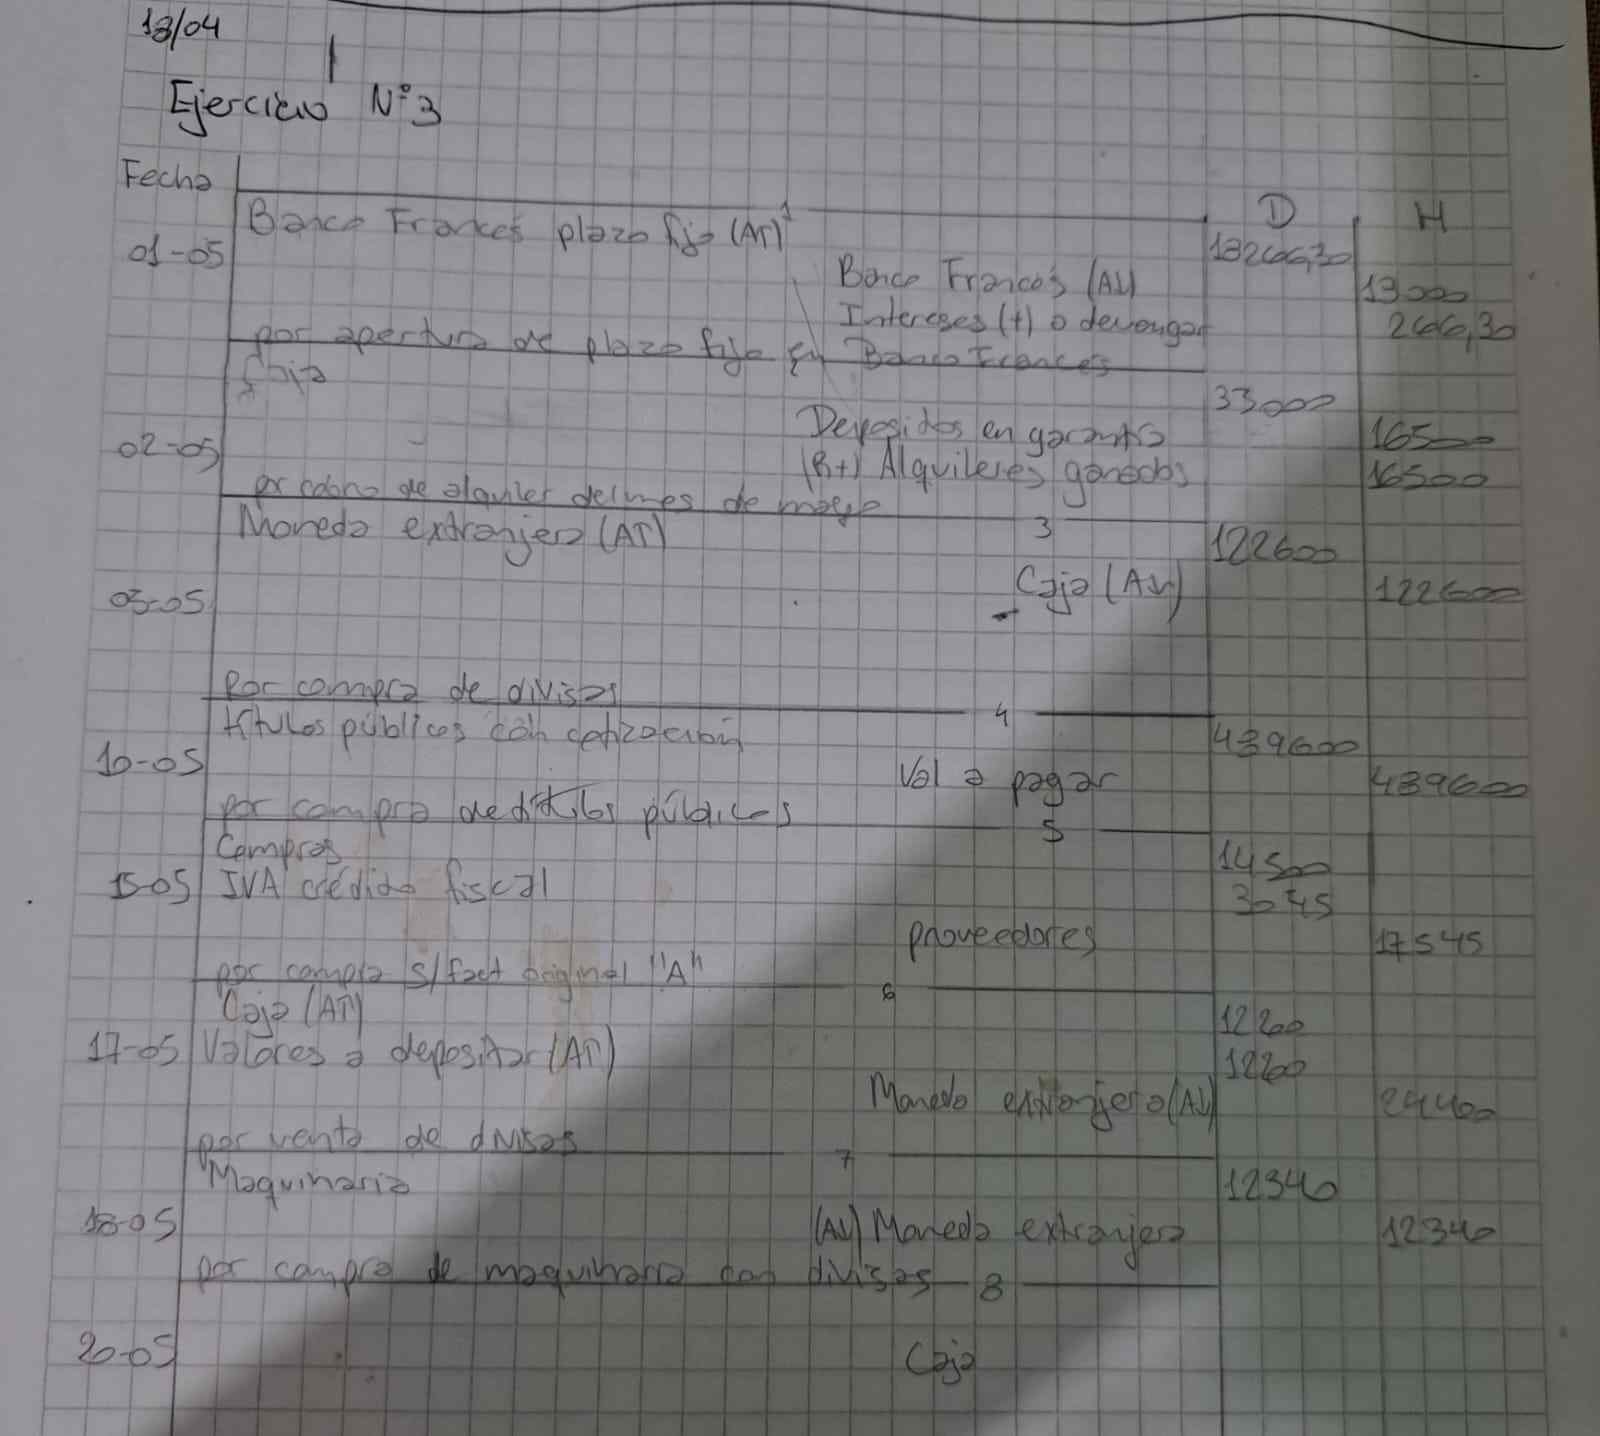 18/04
Ejercicio N°3
Fecha D H
Banco Francés plazo fijo (A↑) 1 13266,30
01-05 Banco Francés (A↓) 13000
Intereses (+) a devengar 266,30
por apertura de plazo fijo en Banco Frances
Caja 33000
Deposidos en garantia 16500
02-05 (R+) Alquileres ganados 16500
por cobro de alquiler del mes de mayo
3
Moneda extranjera (A↑) 122600
03-05 Caja (A↓) 122600
Por compra de divisas
4
títulos públicos con cotización 439600
10-05 Val a pagar 439600
por compra de titulos públicos
5
Compras 14500
15-05 IVA crédito fiscal 3045
proveedores 17545
por compra s/fact original "A"
6
Caja (A↑) 12200
17-05 Valores a depositar (A↑) 12200
Moneda extranjera (A↓) 24400
por venta de divisas
7
Maquinaria 12340
18-05 (A↓) Moneda extranjera 12340
por compra de maquinaria con divisas
8
20-05 Caja